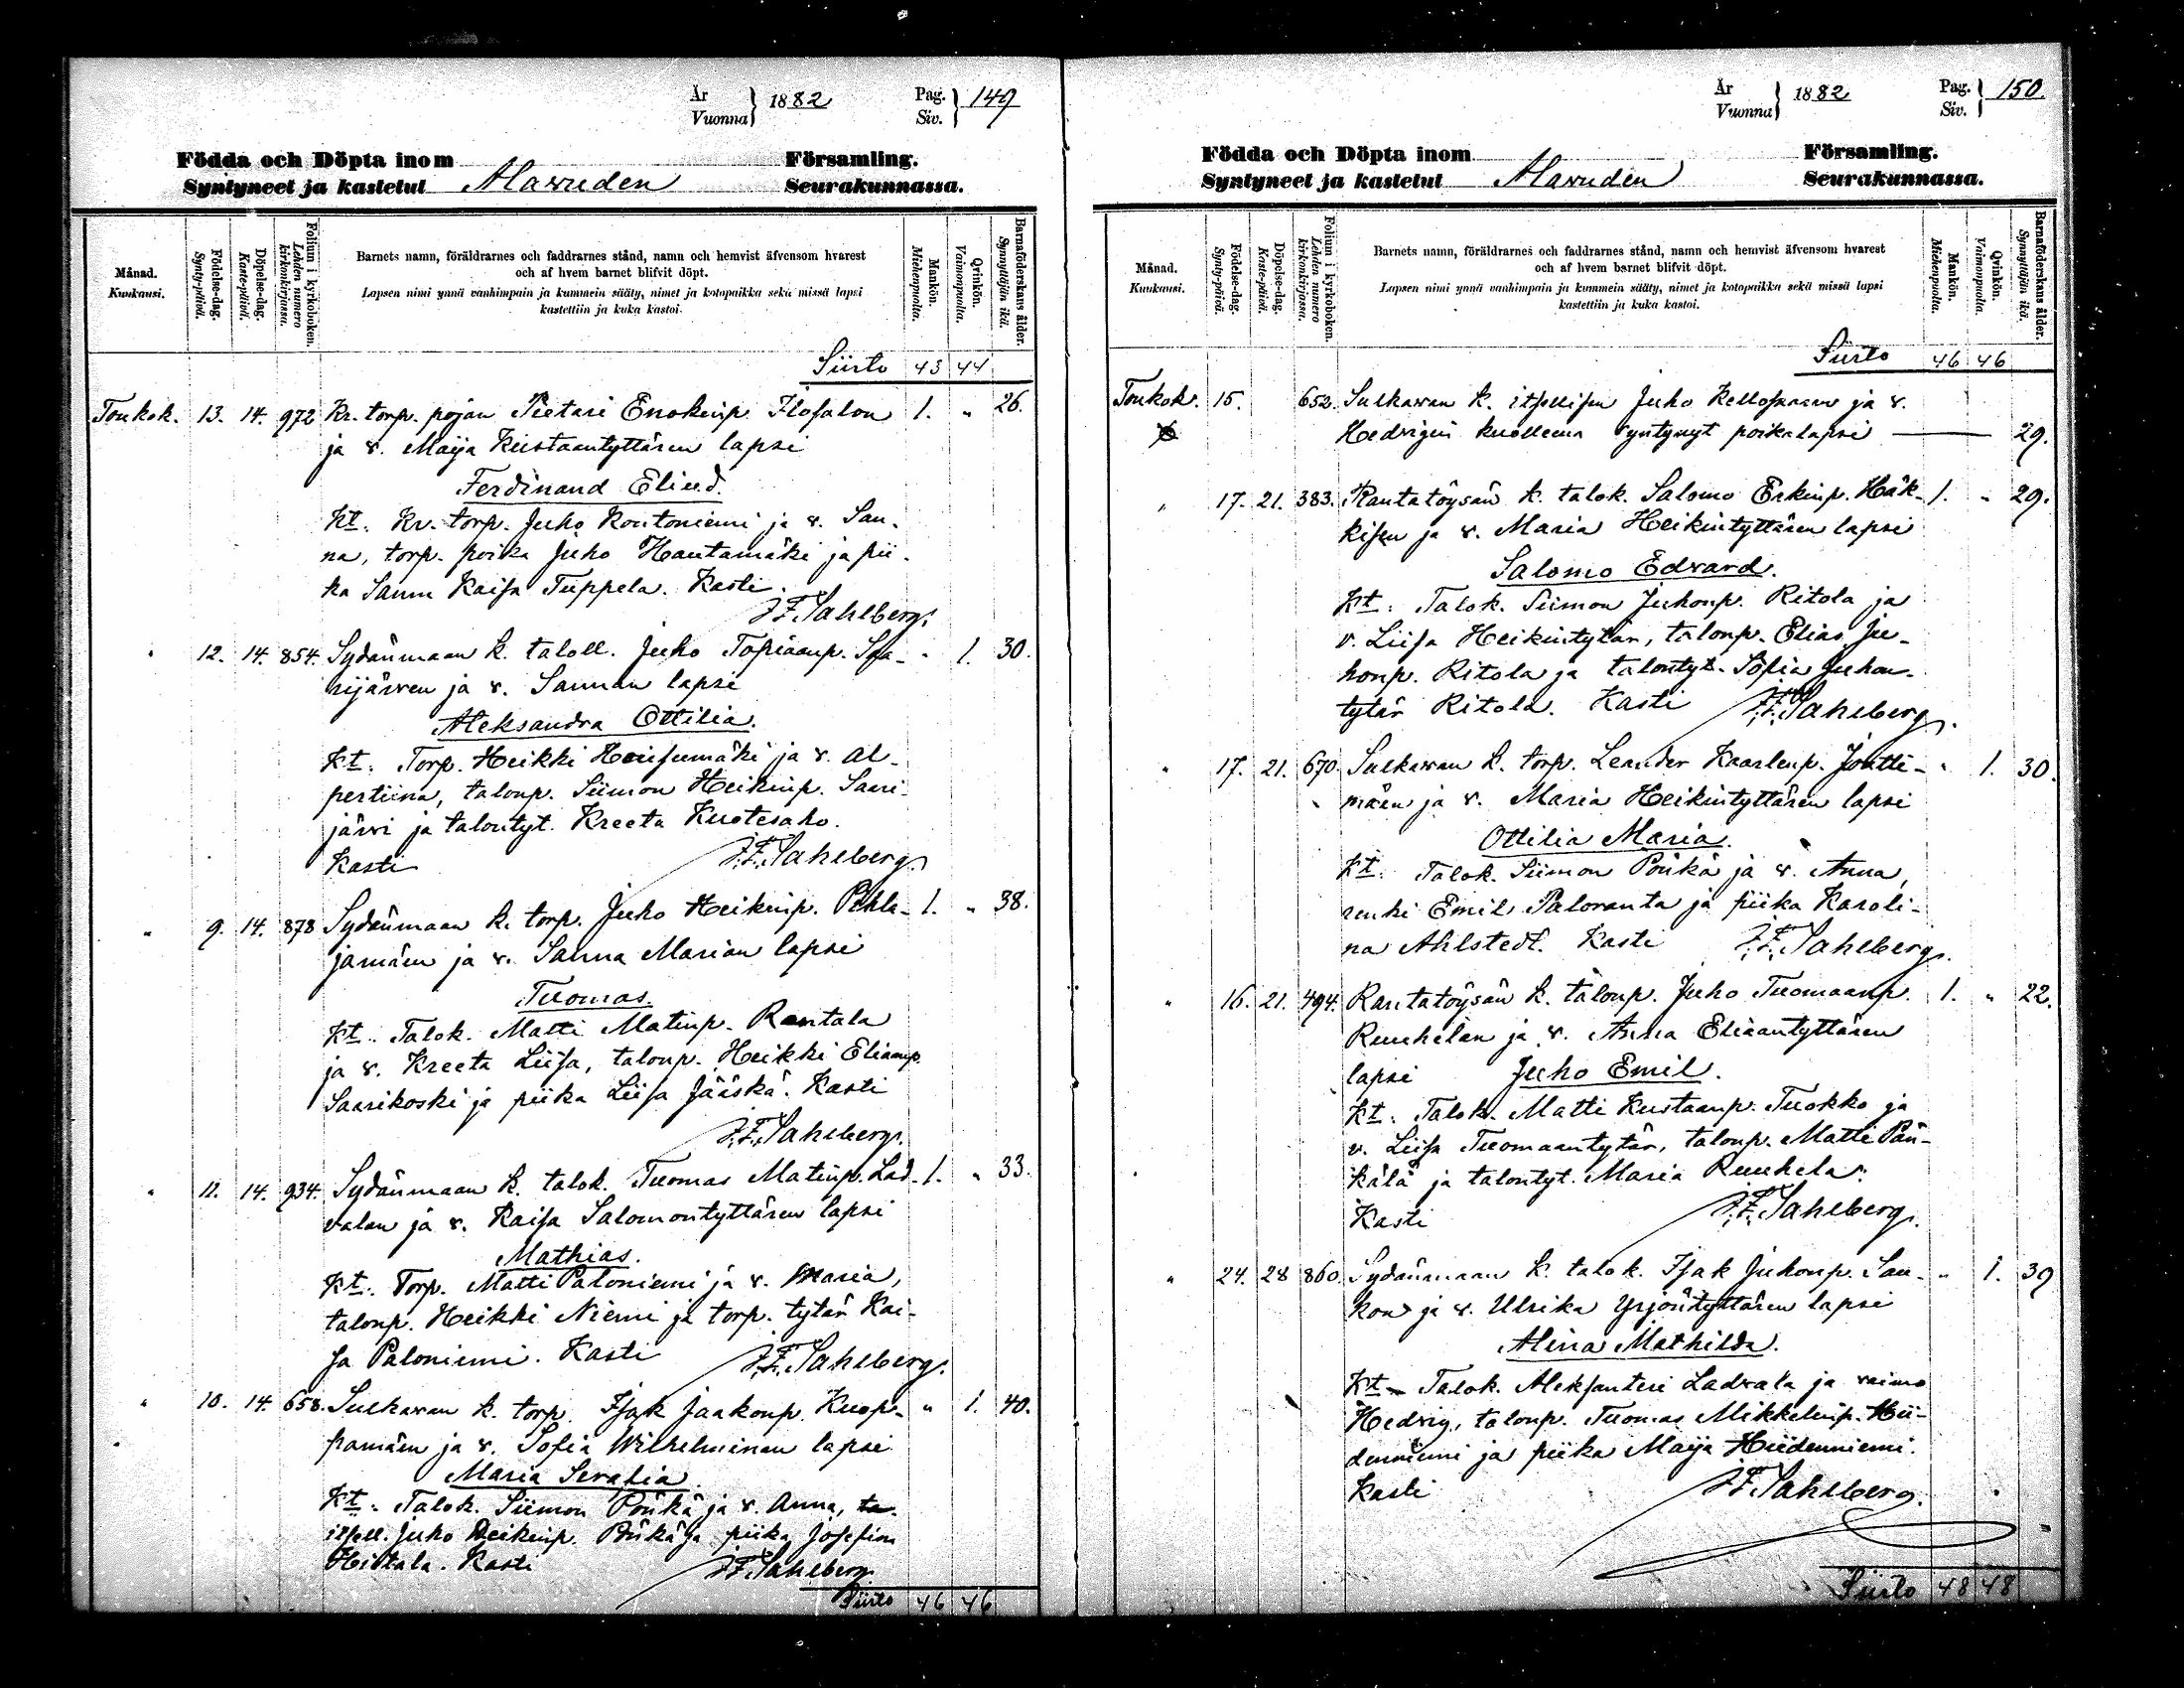 År
Vuonna } 1882
Pag.
Siv. } 149
Födda och Döpta inom Församling.
Syntyneet ja kastetut Alavuden Seurakunnassa.
Månad.
Kuukausi.
Födelse-dag.
Synty-päivä.
Döpelse-dag.
Kaste-päivä.
Folium i kyrkoboken.
Lehden numero kirkonkirjassa.
Barnets namn, föräldrarnes och faddrarnes stånd, namn och hemvist äfvensom hvarest
och af hvem barnet blifvit döpt.
Lapsen nimi ynnä vanhimpain ja kummein sääty, nimet ja kotopaikka sekä missä lapsi
kastettiin ja kuka kastoi.
Mankön.
Miehenpuolta.
Qvinkön.
Vaimonpuolta.
Barnaföderskans ålder.
Synnyttäjän ikä.
Siirto 43 44
Toukok. 13. 14. 972 Kr. torp. pojan Pietari Enokinp. Ilosalon 1. " 26.
ja v. Maija Kustaantyttären lapsi
Ferdinand Eliud.
Kt. Kr. torp. Juho Kontoniemi ja v. San-
na, torp. poika Juho Hautamäki ja pii-
ka Sanna Kaisa Tuppela. Kasti
J.F. Sahlberg.
" 12. 14. 854. Sydänmaan k. taloll. Juho Topiaanp. Saa- " 1. 30.
rijärven ja v. Sannan lapsi
Aleksandra Ottilia.
Kt. Torp. Heikki ja v. Al-
pertiina, talonp. Siimon Heikinp. Saari-
järvi ja talontyt. Kreeta Kuotesaho.
Kasti J.F. Sahlberg.
" 9. 14. 878 Sydänmaan k. torp. Juho Heikinp. Pihla- 1. " 38.
jamäen ja v. Sanna Marian lapsi
Tuomas.
Kt. Talok. Matti Matinp. Rantala
ja v. Kreeta Liisa, talonp. Heikki Eliaanp.
Saarikoski ja piika Liisa Jääskä. Kasti
J.F. Sahlberg.
" 11. 14. 934. Sydänmaan k. talok. Tuomas Matinp. Lad- 1. " 33.
valan ja v. Kaisa Salomontyttären lapsi
Mathias.
Kt. Torp. Matti Paloniemi ja v. Maria,
talonp. Heikki Niemi ja torp. tytär Kai-
sa Paloniemi. Kasti J.F. Sahlberg.
" 10. 14. 658. Sulkavan k. torp. Isak Jaakonp. Kuop- " 1. 40.
pamäen ja v. Sofia Wilhelminan lapsi
Maria Serafia
Kt. Talok. Siimon Pöükä ja v. Anna, ta-
itsell. Juho Heikinp. Pöükä ja piika Josefina
Hietala. Kasti J.F. Sahlberg.
Siirto 46 46
År
Vuonna } 1882
Pag.
Siv. } 150.
Födda och Döpta inom Församling.
Syntyneet ja kastetut Alavuden Seurakunnassa.
Månad.
Kuukausi.
Födelse-dag.
Synty-päivä.
Döpelse-dag.
Kaste-päivä.
Folium i kyrkoboken.
Lehden numero kirkonkirjassa.
Barnets namn, föräldrarnes och faddrarnes stånd, namn och hemvist äfvensom hvarest
och af hvem barnet blifvit döpt.
Lapsen nimi ynnä vanhimpain ja kummein sääty, nimet ja kotopaikka sekä missä lapsi
kastettiin ja kuka kastoi.
Mankön.
Miehenpuolta.
Qvinkön.
Vaimonpuolta.
Barnaföderskans ålder.
Synnyttäjän ikä.
Siirto 46 46
Toukok. 15. 652. Sulkavan k. itsellisen Juho Kellosaaren ja v.
Hedvigin kuolleena syntynyt poikalapsi — 29.
" 17. 21. 383. Rantatöysän k. talok. Salomo Erkinp. Häk- 1. " 29.
kisen ja v. Maria Heikintyttären lapsi
Salomo Edvard.
Kt. Talok. Siimon Juhonp. Ritola ja
v. Liisa Heikintytär, talonp. Elias Ju-
honp. Ritola ja talontyt. Sofia Juhon-
tytär Ritola. Kasti J.F. Sahlberg.
" 17. 21. 670. Sulkavan k. torp. Leander Kaarlenp. Jontti- " 1. 30.
mäen ja v. Maria Heikintyttären lapsi
Ottilia Maria.
Kt. Talok. Siimon Pöükä ja v. Anna,
renki Emil Paloranta ja piika Karoli-
na Ahlstedt. Kasti J.F. Sahlberg.
" 16. 21. 494. Rantatöysän k. talonp. Juho Tuomaanp. 1. " 22.
Ruuhelan ja v. Anna Eliaantyttären
lapsi Juho Emil.
Kt. Talok. Matti Kustaanp. Tuokko ja
v. Liisa Tuomaantytär, talonp. Matti Pän-
kälä ja talontyt. Maria Ruuhela.
Kasti J.F. Sahlberg.
" 24. 28 860. Sydänmaan k. talok. Isak Juhonp. Sau- " 1. 39
kon ja v. Ulrika Yrjöntyttären lapsi
Alina Mathilda.
Kt. Talok. Aleksanteri Ladvala ja vaimo
Hedvig, talonp. Tuomas Mikkelinp. Hii-
denniemi ja piika Maija Hiidenniemi.
Kasti J.F. Sahlberg.
Siirto 48 48